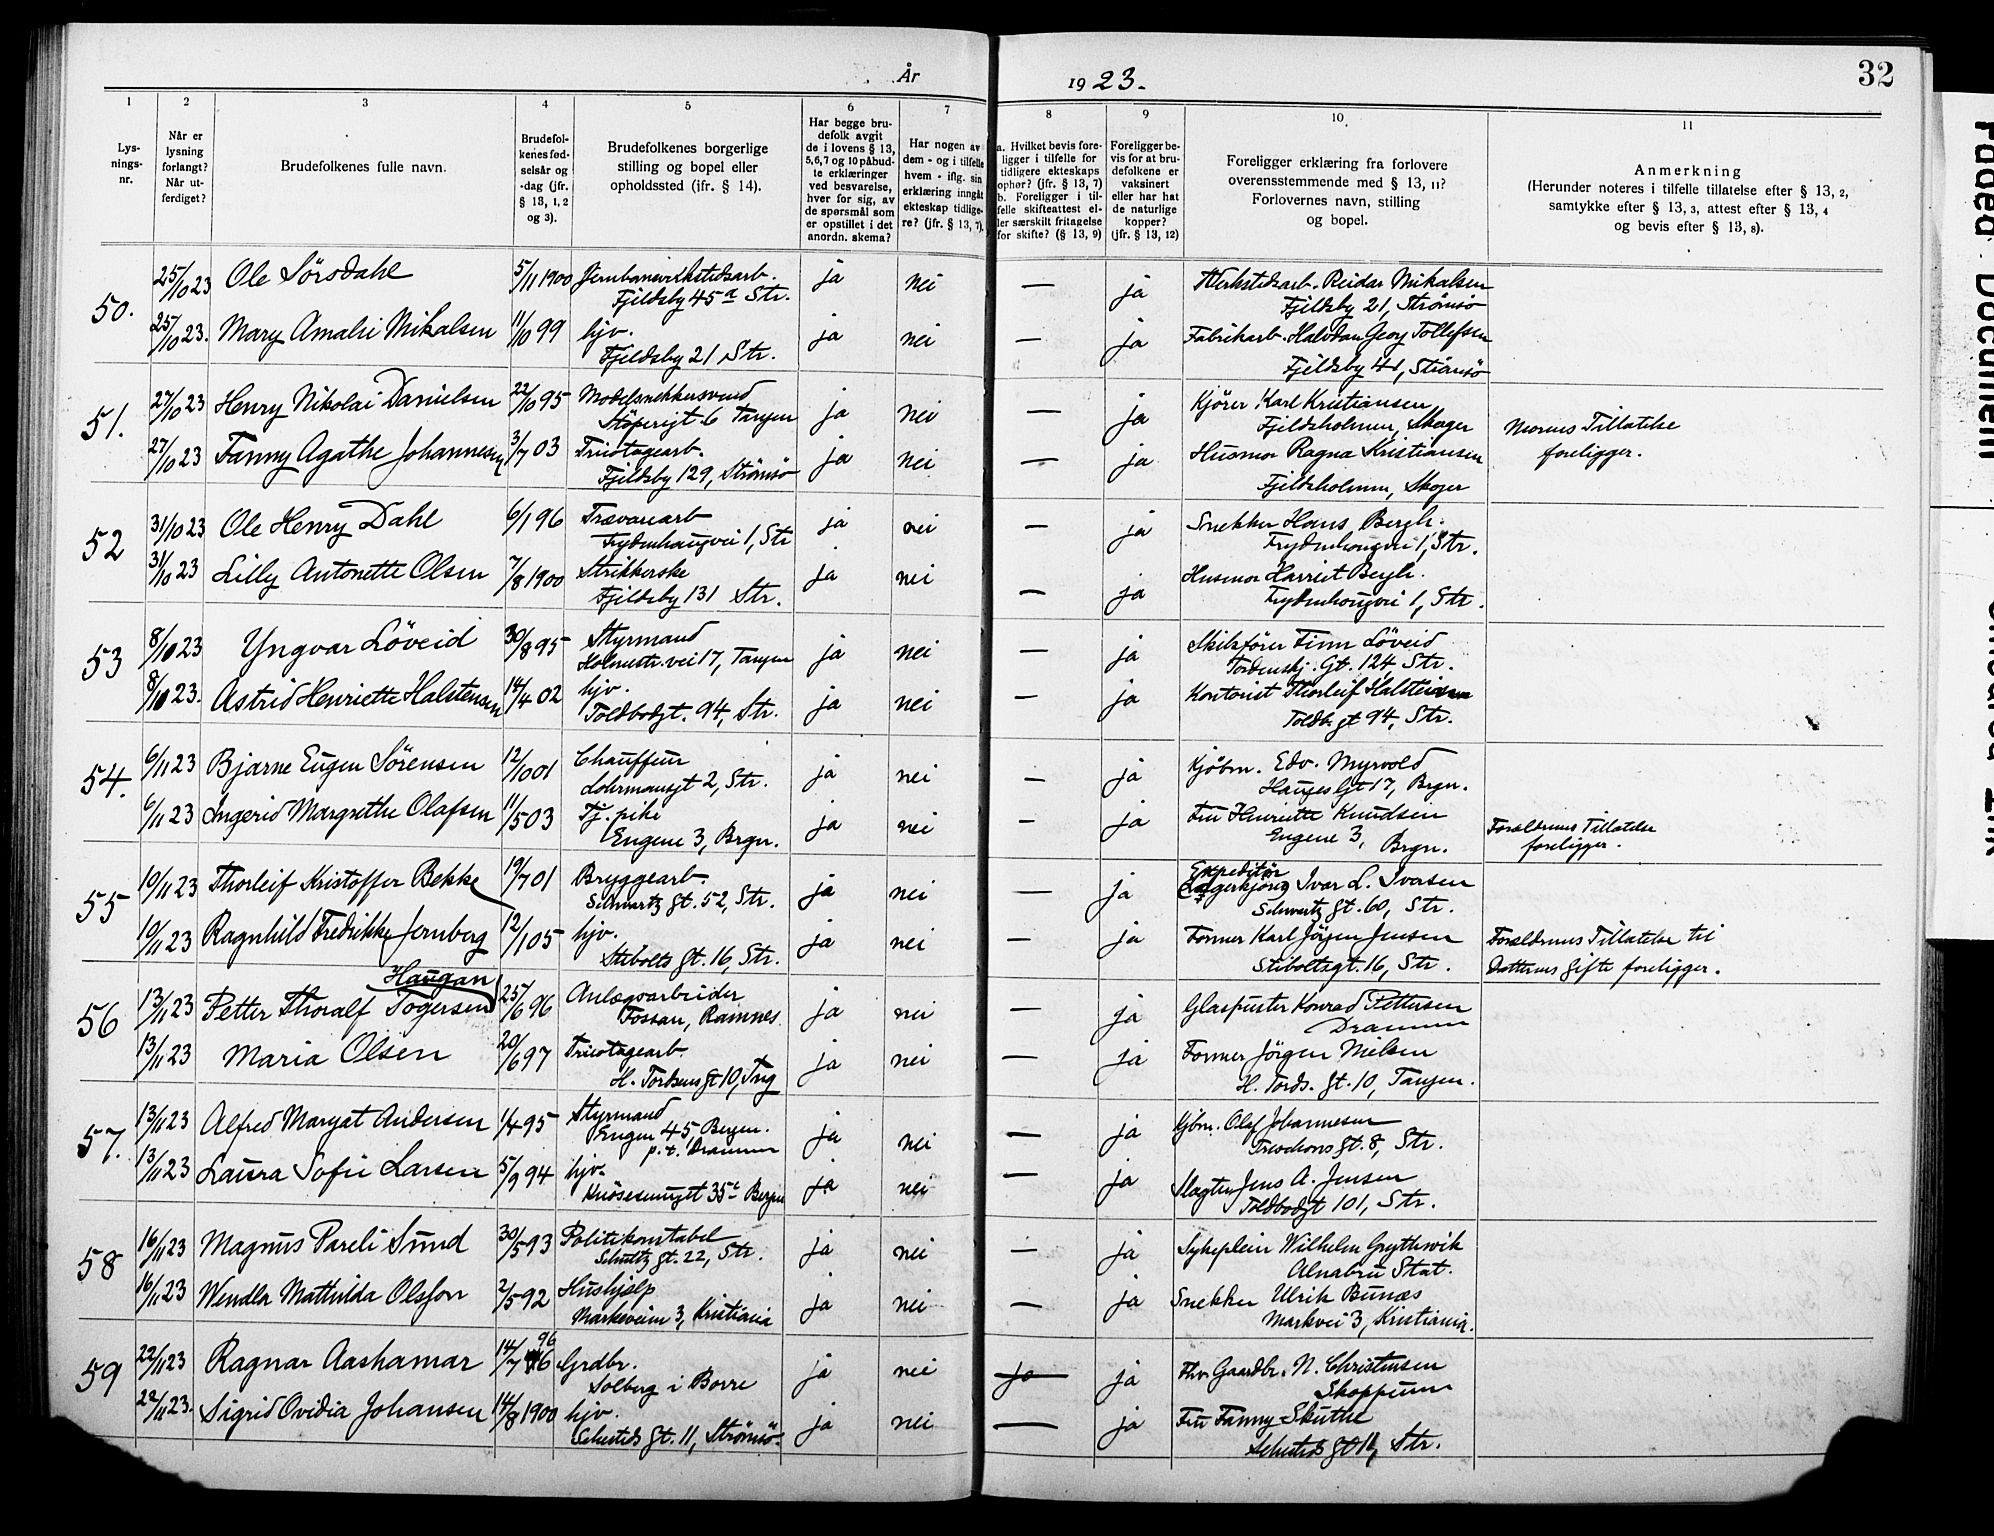 År 1923.
32
1
2
3
4
5
6
7
8
9
10.
11
Lys-
nings-
nr.
Når er
lysning
forlangt?
Når ut-
ferdiget?
Brudefolkenes fulle navn.
Brudefol-
kenes fød-
selsår og
-dag (jfr.
§ 13, 1, 2
og 3).
Brudefolkenes borgerlige
stilling og bopel eller
opholdssted (ifr. § 14).
Har begge bru-
defolk avgit
de i lovens § 13,
5,6,7 og 10 påbud-
te erklæringer
ved besvarelse,
hver for sig, av
de spørsmål som
er opstillet i det
anordn. skema?
Har nogen av
dem - og i tilfelle
hvem - iflg. sin
erklæring inngåt
ekteskap tidlige-
re? (jfr. § 13, 7).
a. Hvilket bevis fore-
ligger i tilfelle for
tidligere ekteskaps
ophør? (jfr. § 13, 7)
b. Foreligger i til-
felle skifteattest el-
ler særskilt fritagelse
for skifte? (§ 13, 9)
Foreligger be-
vis for at bru-
defolkene er
vaksinert
eller har hat
de naturlige
kopper?
(jfr. § 13, 12)
Foreligger erklæring fra forlovere
overensstemmende med § 13, 11?
Forlovernes navn, stilling
og bopel.
Anmerkning
(Herunder noteres i tilfelle tillatelse efter § 13, 2,
samtykke efter § 13, 3, attest efter § 13, 4
og bevis efter § 13, 8).
50.
25/10 23 Ole Sörsdahl 5/11 1900 Jernbaneverkstedsarb. ja nei — ja Verkstedsarb. Reidar Mikalsen
Fjeldsby 45a Str. Fjeldsby 21, Strömsö
25/10 23. Mary Amalie Mikalsen 11/10 99 hjv. ja nei — ja Fabrikarb. Halvdan Georg Tollefsen
Fjeldsby 21 Str. Fjeldsby 41, Strömsö
51.
27/10 23 Henry Nikolai Danielsen 22/10 95 Modelsnekkersvend ja nei — ja Kjörer Karl Kristiansen
Stöperigt. 6 Tangen Fjeldsholmen, Skoger
27/10 23 Fanny Agathe Johannesen 3/7 03 Tricotagearb. ja nei — ja Husmor Ragna Kristiansen
Fjeldsby 129, Strömsö Fjeldsholmen, Skoger
Morens Tillatelse
foreligger.
52
31/10 23 Ole Henry Dahl 6/1 96 Trævarearb ja nei — ja Snekker Hans Bergh.
Frydenhaugvei 1, Str Frydenhaugvei 1, Str.
31/10 23 Lilly Antonette Olsen 7/8 1900 Strikkerske ja nei — ja Husmor Harriet Bergh.
Fjeldsby 131 Str. Frydenhaugvei 1, Str.
53
8/10 23 Yngvar Löveid 30/8 95 Styrmand ja nei — ja Skibsförer Finn Löveid
Holmestr. vei 17, Tangen Tordenskj. Gt. 124, Str.
8/10 23. Astrid Henriette Halstensen 14/4 02 hjv. ja nei — ja Kontorist Thorleif Halstensen
Toldbodgt. 94, Str. Toldb. gt 94, Str.
54.
6/11 23 Bjarne Eugen Sörensen 12/10 01 Chauffeur ja nei — ja Kjöbm. Edv. Myrvold
Lohrmansgt 2, Str. Hauges Gt 17, Brgn.
6/11 23 Ingerid Margrethe Olafsen 11/5 03 Tj. pike ja nei — ja Fru Henriette Knudsen
Engene 3, Brgn. Engene 3, Brgn.
Forældrenes Tillatelse
foreligger.
55
10/11 23 Thorleif Kristoffer Bekke 19/7 01 Bryggearb. ja nei — ja Expeditör Ivar L. Iversen
Schwartz gt. 52, Str. Schwartz gt. 60, Str.
10/11 23 Ragnhild Fredrikke Jernberg 12/1 05 hjv. ja nei — ja Former Karl Jörgen Jensen
Stibolts gt. 16, Str. Stiboltsgt. 16, Str.
Forældrenes Tillatelse til
Datterens Gifte foreligger.
56
Haugan
13/11 23 Petter Thoralf Togersen 25/6 96 Anlægsarbeider ja nei — ja Glaspuster Konrad Pettersen
Fossan, Ramnes Drammen
13/11 23 Maria Olsen 20/6 97 Tricotagearb. ja nei — ja Former Jörgen Nielsen
H. Tordsens gt 10, Tng H. Tords. gt. 10, Tangen.
57.
13/11 23 Alfred Maryat Andersen 1/4 95 Styrmand ja nei — ja Kjbm. Olaf Johannesen
Engen 45, Bergen. Treschows gt. 8, Str.
p. t. Drammen
13/11 23 Laura Sofie Larsen 5/9 94 hjv. ja nei — ja Slagter Jens A. Jensen
Knösesmuget 35 Bergen Toldbodgt 101, Str.
58
16/11 23 Magnus Pareli Sund 30/5 93 Politikonstabel ja nei — ja Sykepleier Wilhelm Grythevik
Schultz gt. 22, Str. Alnabru Stat.
16/11 23 Wendla Mathilda Olsson 2/5 92 Hushjelp ja nei — ja Snekker Ulrik Bunæs
Markveien 3, Kristiania Markvei 3, Kristiania.
59
22/11 23 Ragnar Aashamar 14/7 96 Grdbr. ja nei ja ja Fhv. Gaardbr. N. Christensen
Solberg i Borre Skoppum
22/11 23. Sigrid Ovidia Johansen 14/8 1900 hjv. ja nei — ja Fru Fanny Skuthe
Sehesteds gt. 11, Strömsö. Sehesteds gt 11, Str.